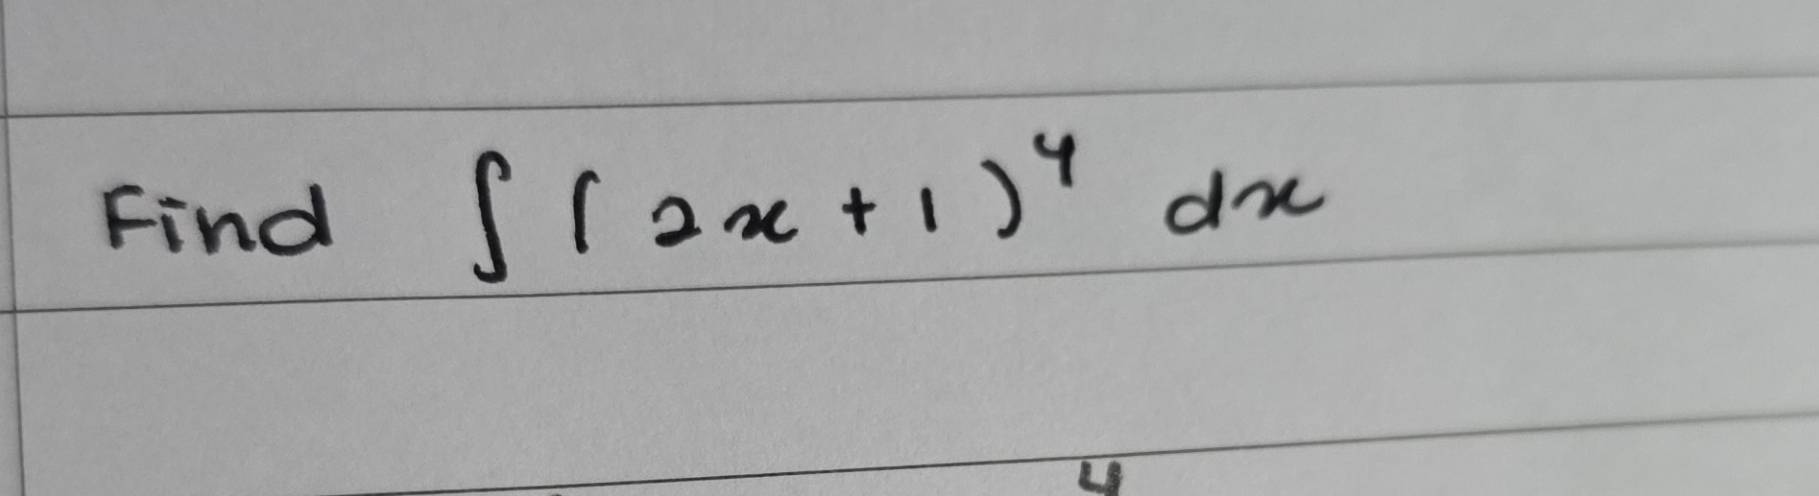 Find ∫ (2x+1)⁴ dx
4